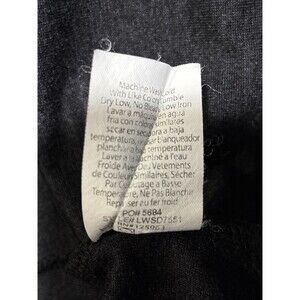 Machine Wash Cold
With Like Colors Tumble
Dry Low, No Bleach Low Iron
Lavar a máquina en agua
fria con colores similares
secar en secadora a baja
temperatura, no usar blanqueador
planchar a baja temperatura
Laver à la machine à l'eau
Froide Avec Des Vetements
de Couleurs Similaires, Sécher
Par Culbutage a Basse
Temperature, Ne Pas Blanchir
Repasser au fer froid
PO# 5684
STYLE# LWSD7551